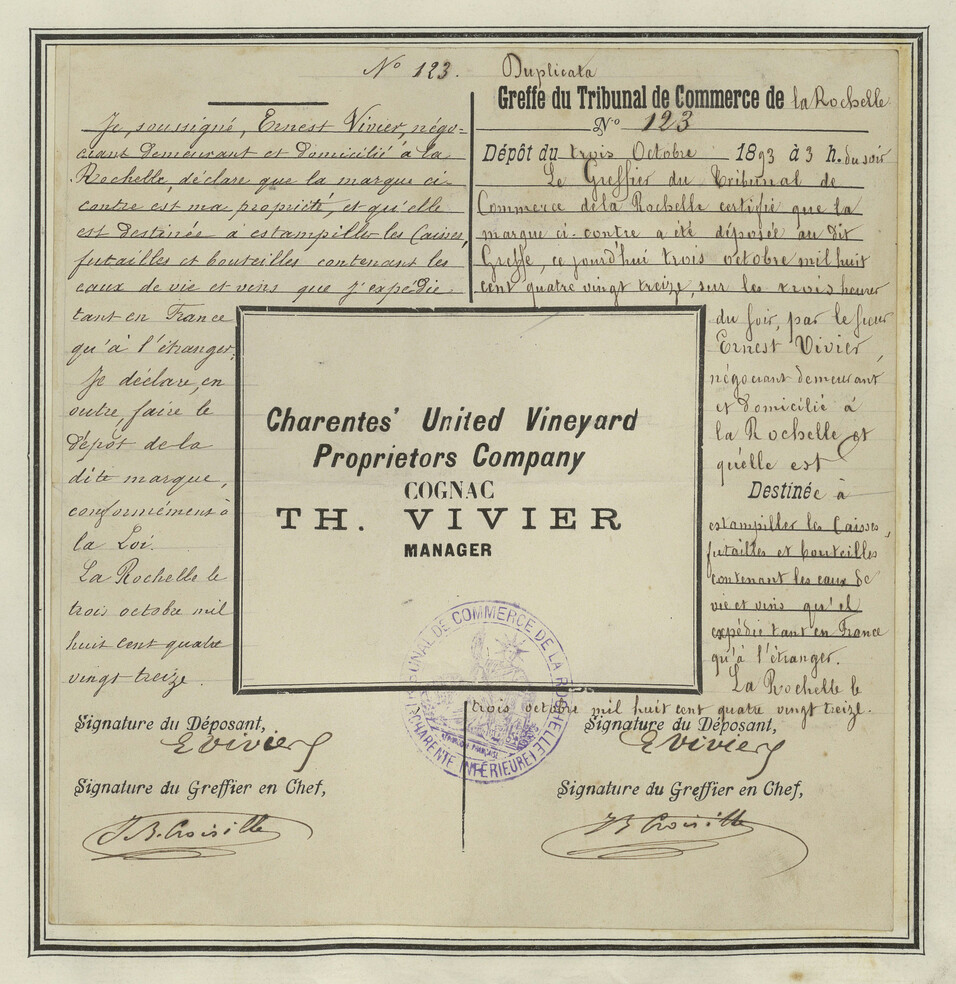 No 123.
Je, soussigné, Ernest Vivier, négo-
ciant demeurant et domicilié à la
Rochelle, déclare que la marque ci-
contre est ma propriété, et qu'elle
est destinée à estampiller les Caisses,
futailles et bouteilles contenant les
eaux de vie et vins que j'expédie
tant en France
qu'à l'étranger.
Je déclare, en
outre, faire le
dépôt de la
dite marque,
conformément à
la Loi.
La Rochelle le
trois octobre mil
huit cent quatre
vingt treize.
Signature du Déposant,
E Vivier
Signature du Greffier en Chef,
J. B. Croisille
Duplicata
Greffe du Tribunal de Commerce de la Rochelle
No 123
Dépôt du trois Octobre 1893 à 3 h. du soir
Le Greffier du Tribunal de
Commerce de la Rochelle certifie que la
marque ci-contre a été déposée au dit
Greffe, ce jourd'hui trois octobre mil huit
cent quatre vingt treize, sur les trois heures
du soir, par le sieur
Ernest Vivier,
négociant demeurant
et domicilié à
la Rochelle et
qu'elle est
Destinée à
estampiller les Caisses,
futailles et bouteilles
contenant les eaux de
vie et vins qu'il
expédie tant en France
qu'à l'étranger.
La Rochelle le
trois octobre mil huit cent quatre vingt treize.
Signature du Déposant,
E Vivier
Signature du Greffier en Chef,
J B Croisille
Charentes' United Vineyard
Proprietors Company
COGNAC
TH. VIVIER
MANAGER
TRIBUNAL DE COMMERCE DE LA ROCHELLE
(CHARENTE INFÉRIEURE)